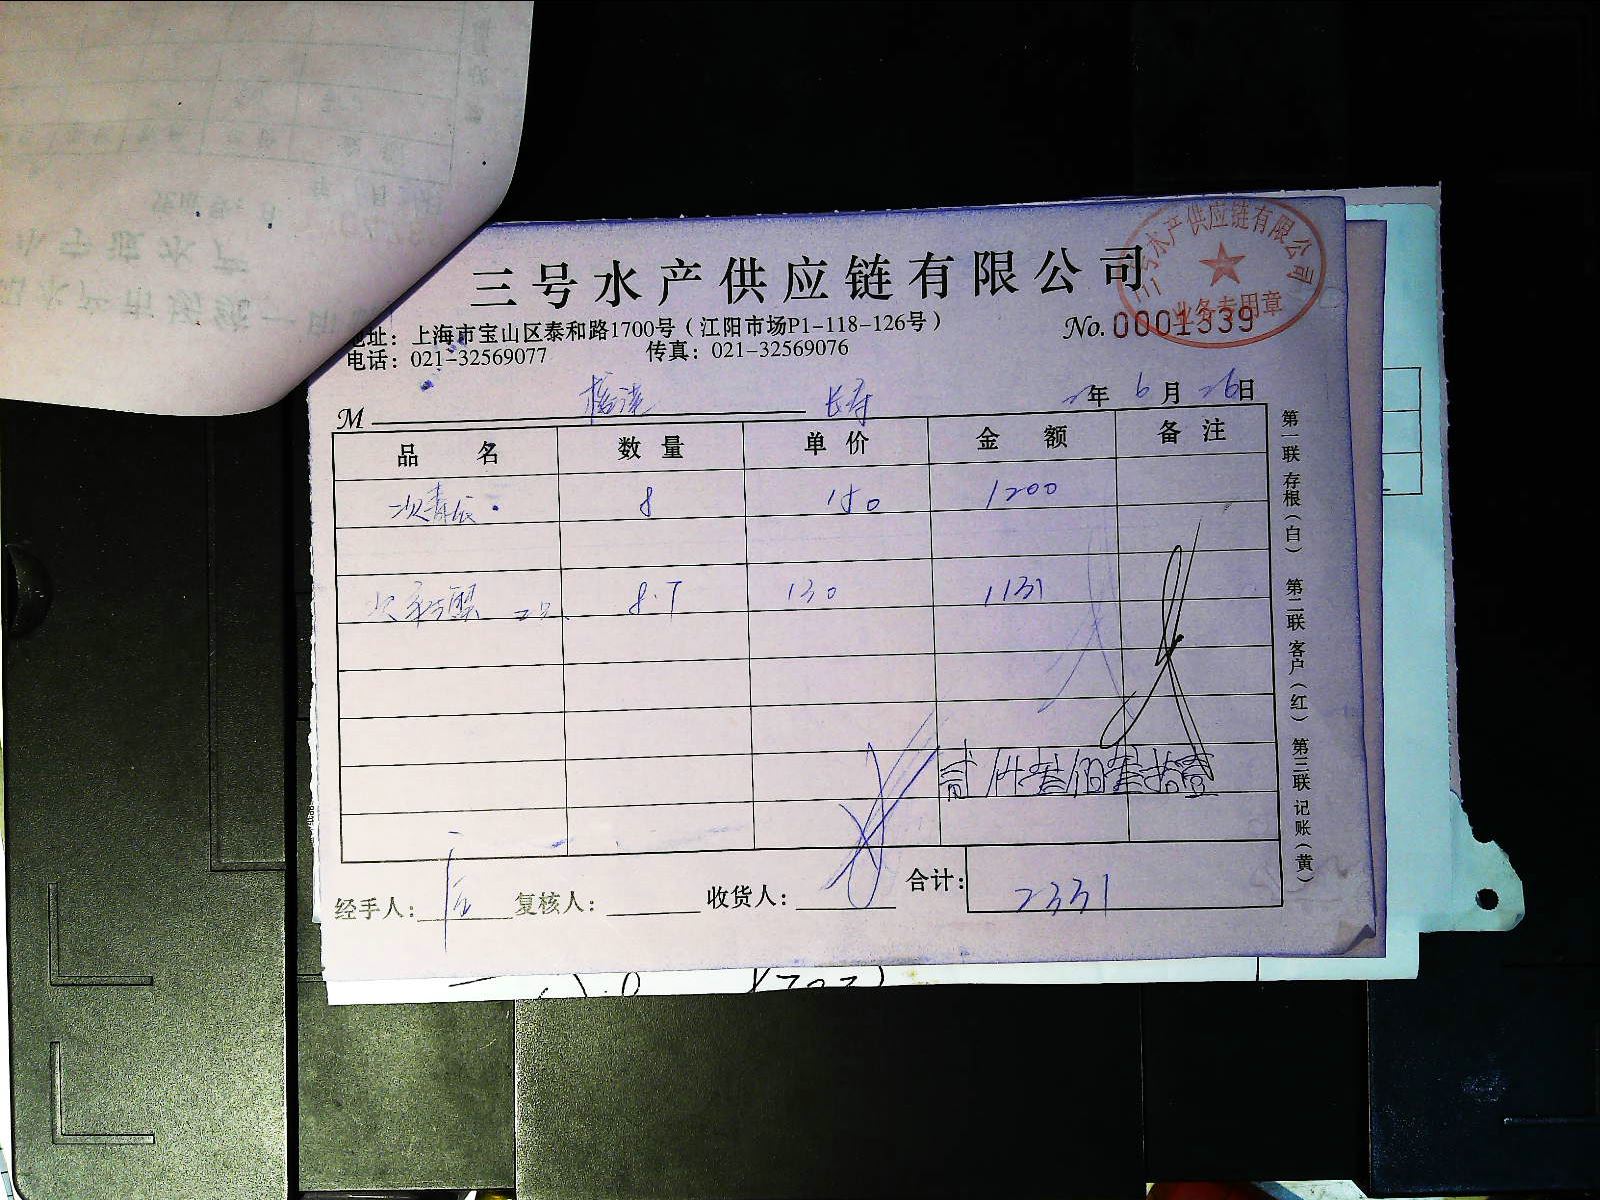 三号水产供应链有限公司
三号水产供应链有限公司
业务专用章
地址：上海市宝山区泰和路1700号（江阳市场P1-118-126号）
No. 0001339
电话：021-32569077 传真：021-32569076
M 长寿 年 6 月 26 日
品名 数量 单价 金额 备注
8 150 1200
8.7 130 1131
贰仟叁佰叁拾壹
经手人： 复核人： 收货人： 合计： 2331
第一联 存根（白） 第二联 客户（红） 第三联 记账（黄）